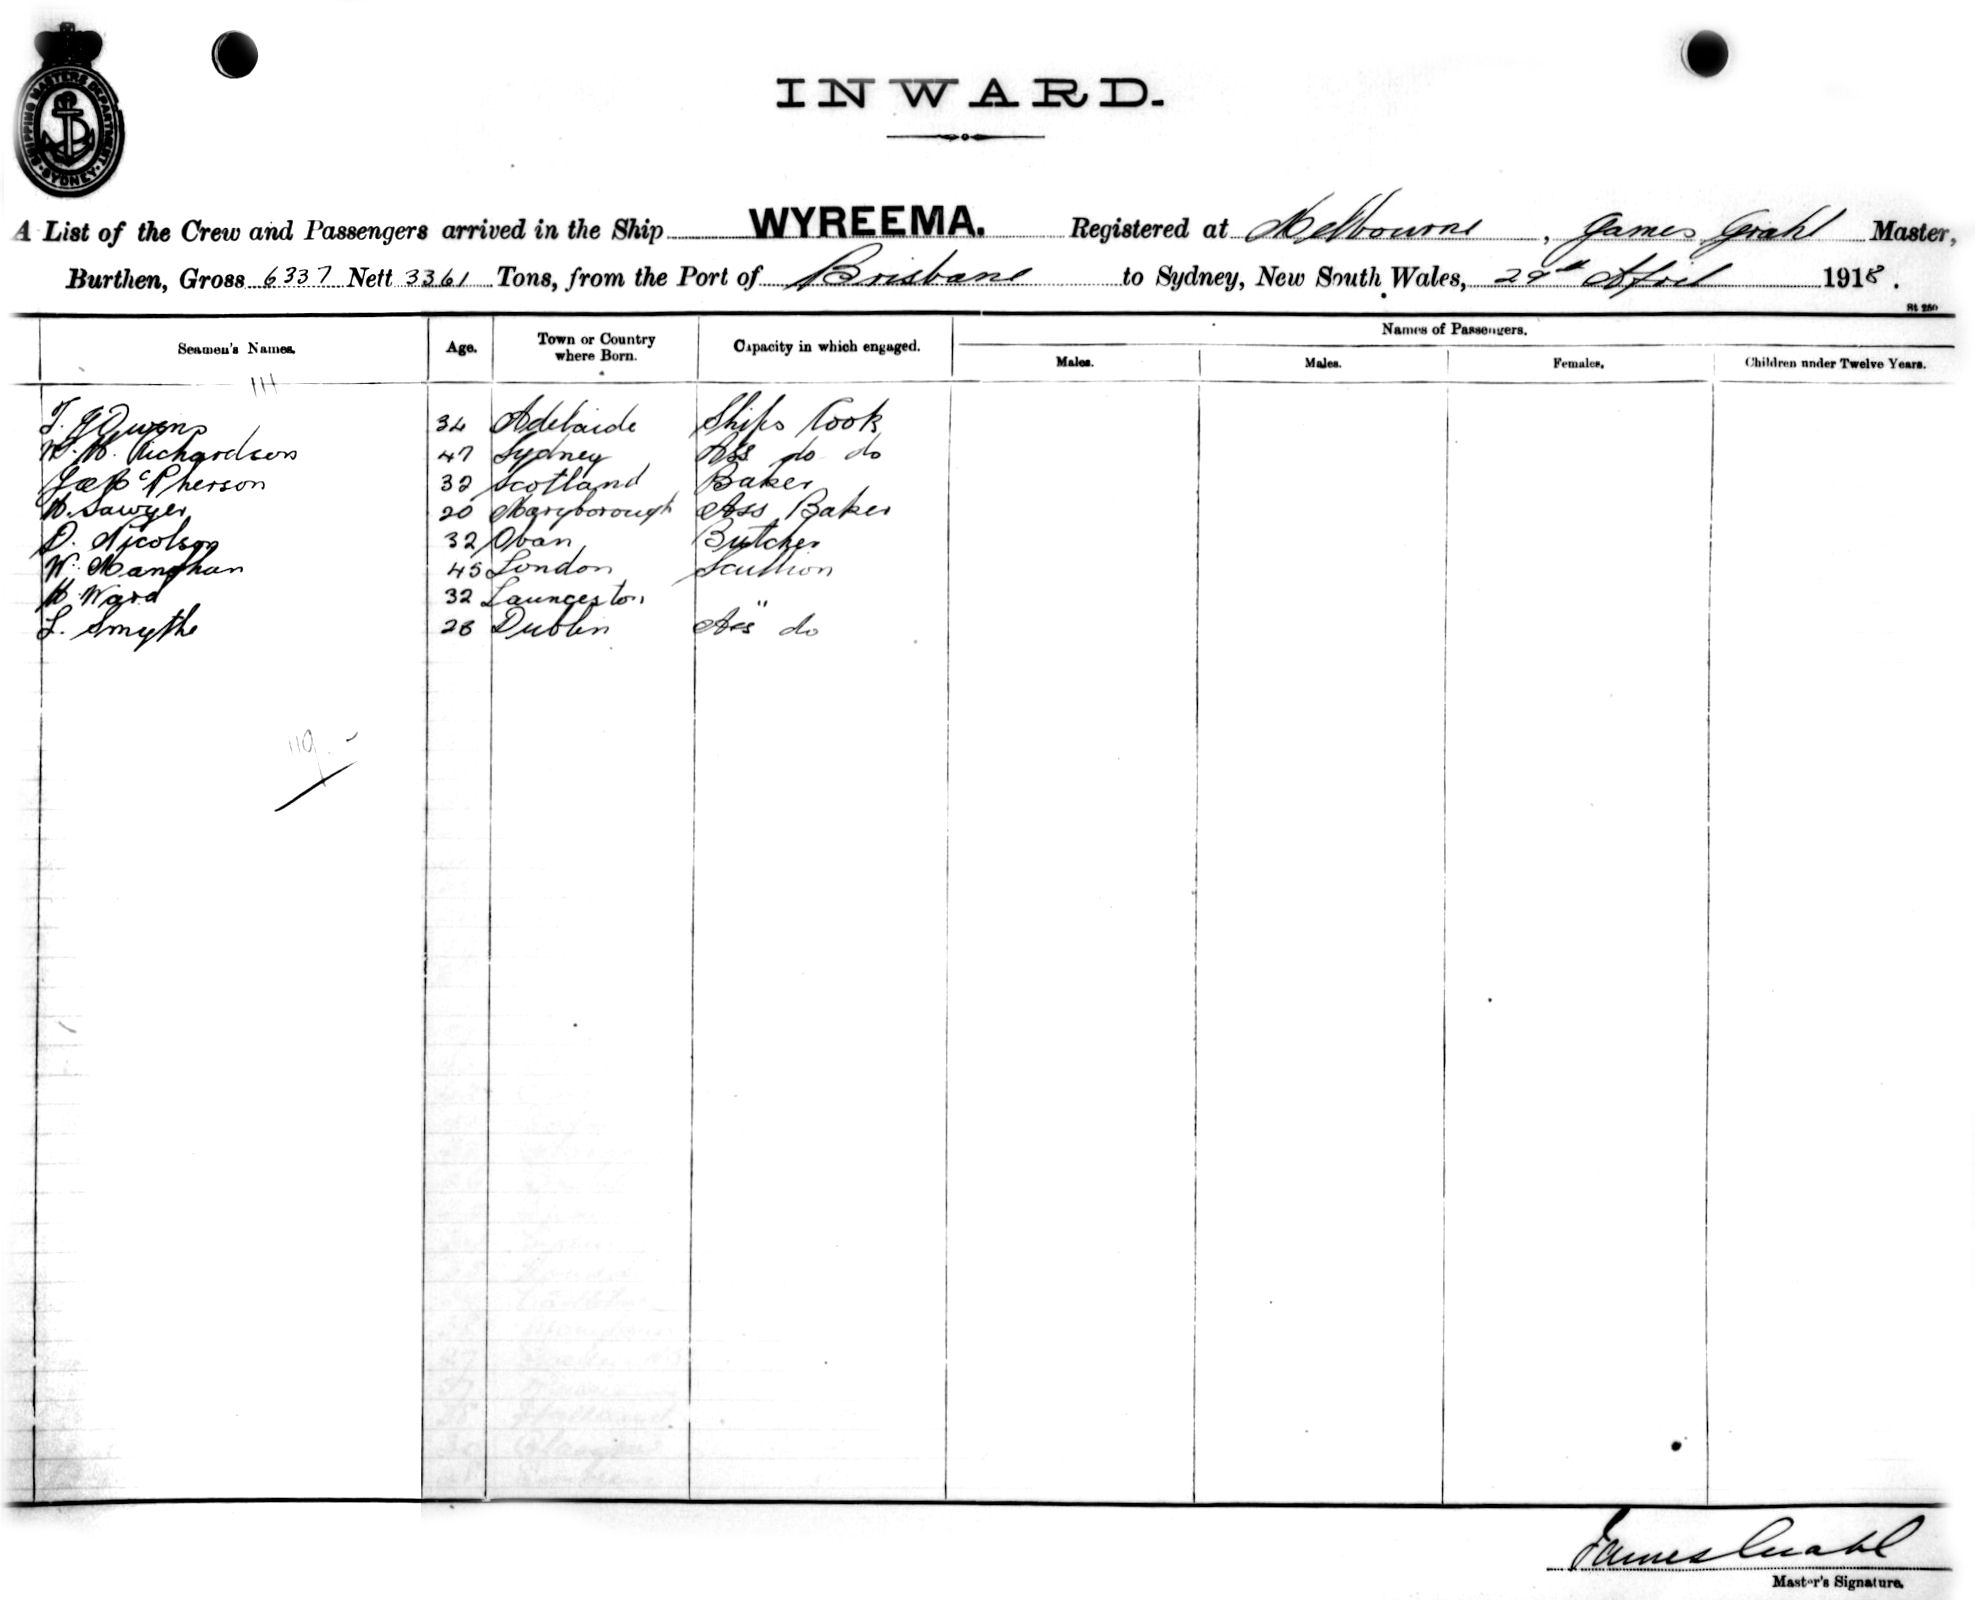 SHIPPING MASTERS DEPARTMENT SYDNEY
INWARD.
A List of the Crew and Passengers arrived in the Ship WYREEMA. Registered at Melbourne, James Grahl Master,
Burthen, Gross 6337 Nett 3361 Tons, from the Port of Brisbane to Sydney, New South Wales, 29th April 1918.
St 250
Seamen's Names. Age. Town or Country where Born. Capacity in which engaged. Names of Passengers.
Males. Males. Females. Children under Twelve Years.
111
T. J Owens 34 Adelaide Ships Cook
W. H. Richardson 47 Sydney Ass do do
Jas McPherson 32 Scotland Baker
H. Sawyer 20 Maryborough Ass Baker
D. Nicolson 32 Oban Butcher
W. Manghan 45 London Scullion
H Ward 32 Launceston "
L. Smythe 28 Dublin Ass do
119.-
James Grahl
Master's Signature.